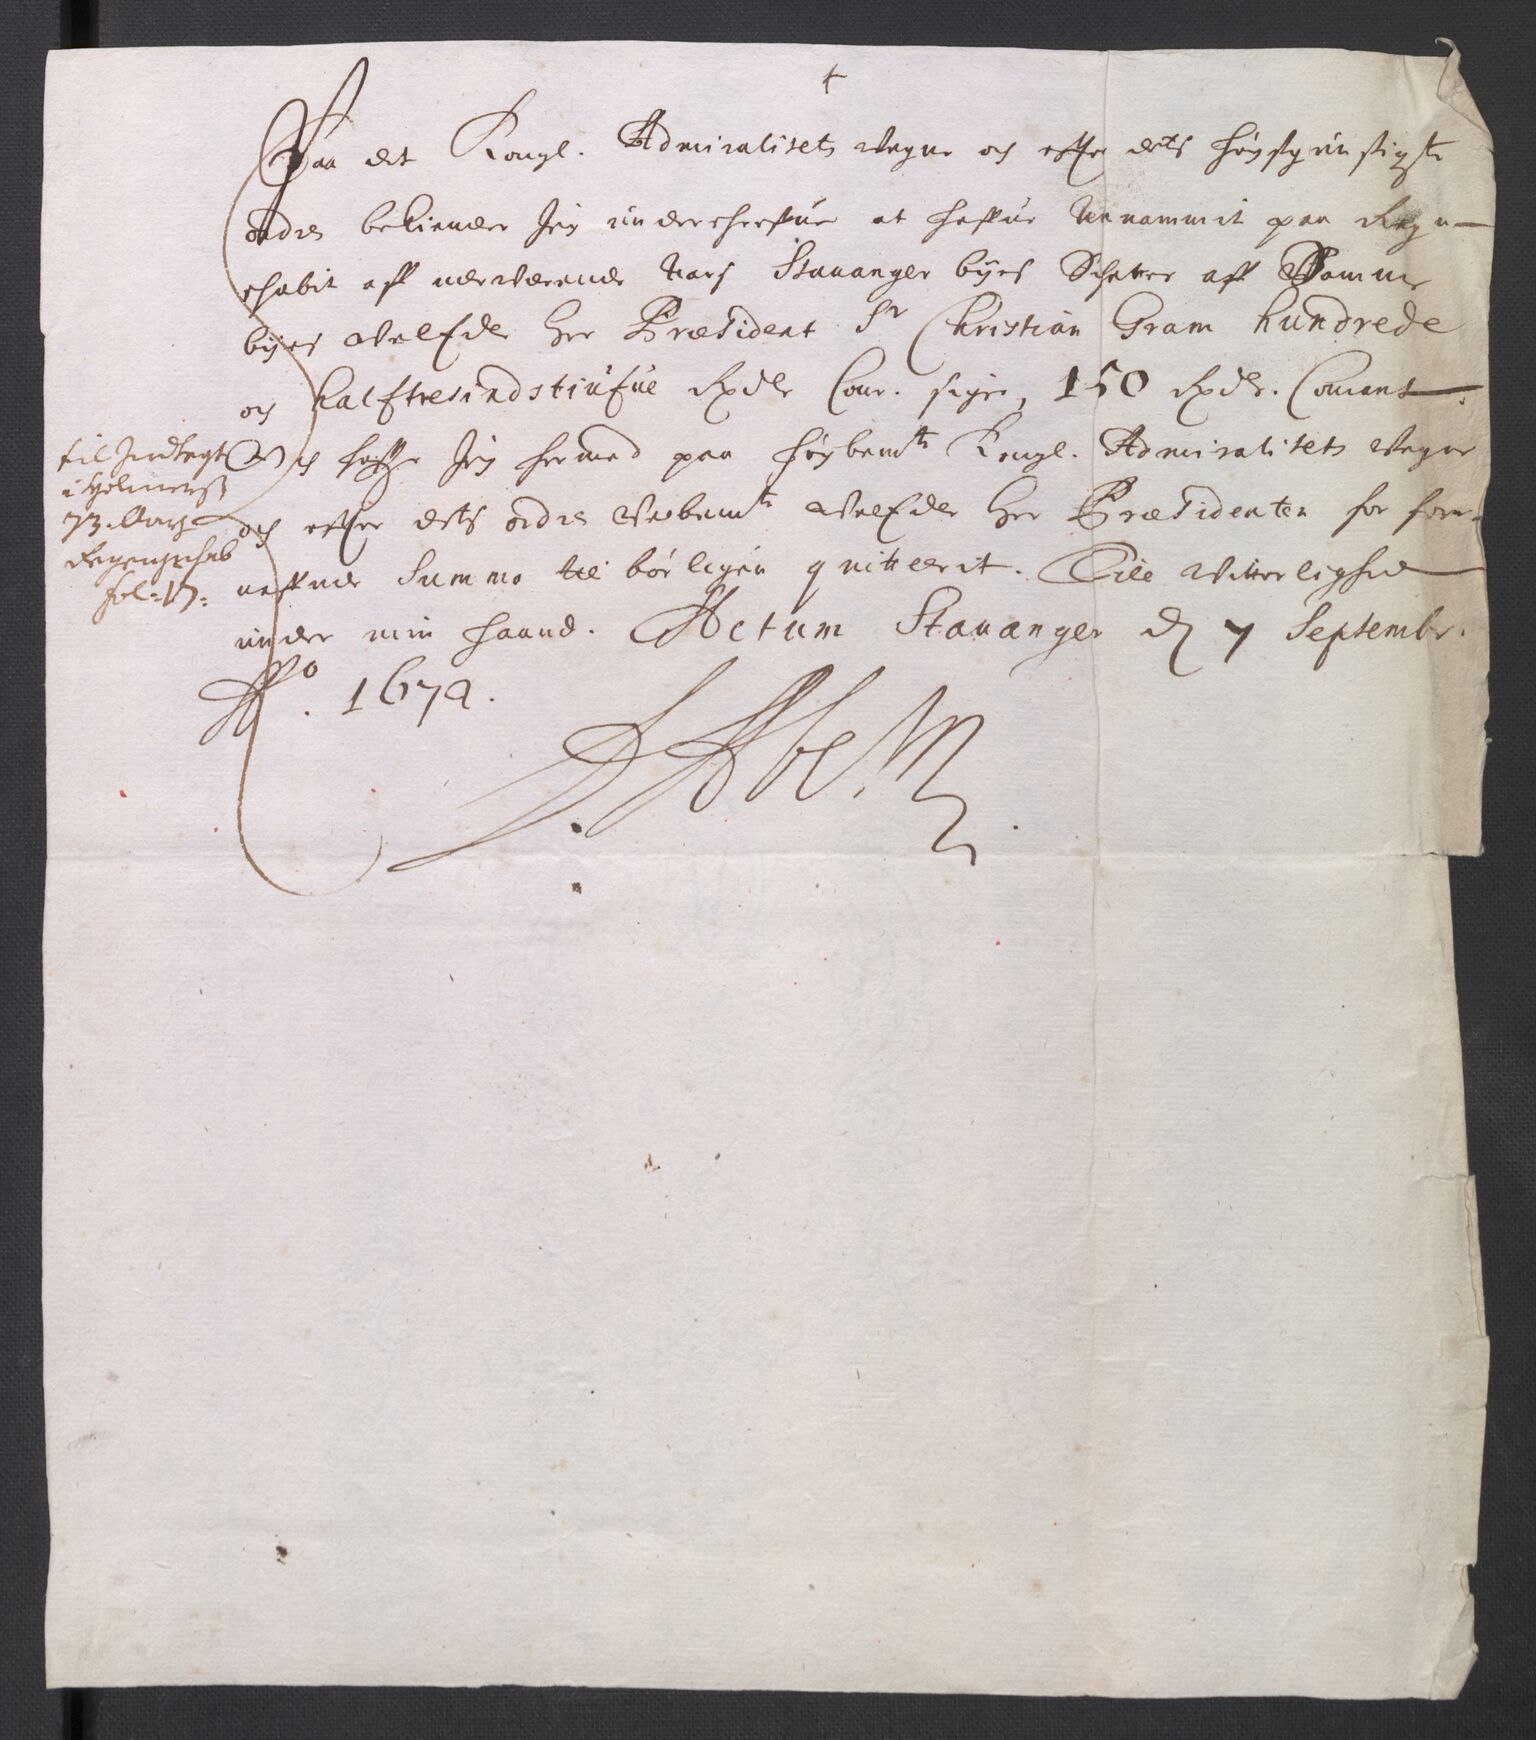 Paa det Kongl. Admiralitets Vegne och effter dets høygunstigste
ordre bekiender Jeg underschrefne at hafue Annammit paa Regn-
schabit aff nerverende Aars Stauanger byes Schatter aff Samme
byes Velede Her Præsident Sr Christian Gram hundrede
och halftresindstiufue Rxdlr Cour. siger, 150 Rxdr. Courant.
Och hafr Jeg hermed paa høybemte Kongl. Admiralitets Vegne
och effter dets ordre Velbemte Velede Her Præsidenten for for-
neffnde Summa til børligen quitterit. Till Vitterlighed
under min haand. Actum Stauanger d 7 Septembr.
Ao. 1674.
til Indtegt
i Holmens
73. Aars
Regenschab
fol: 17: